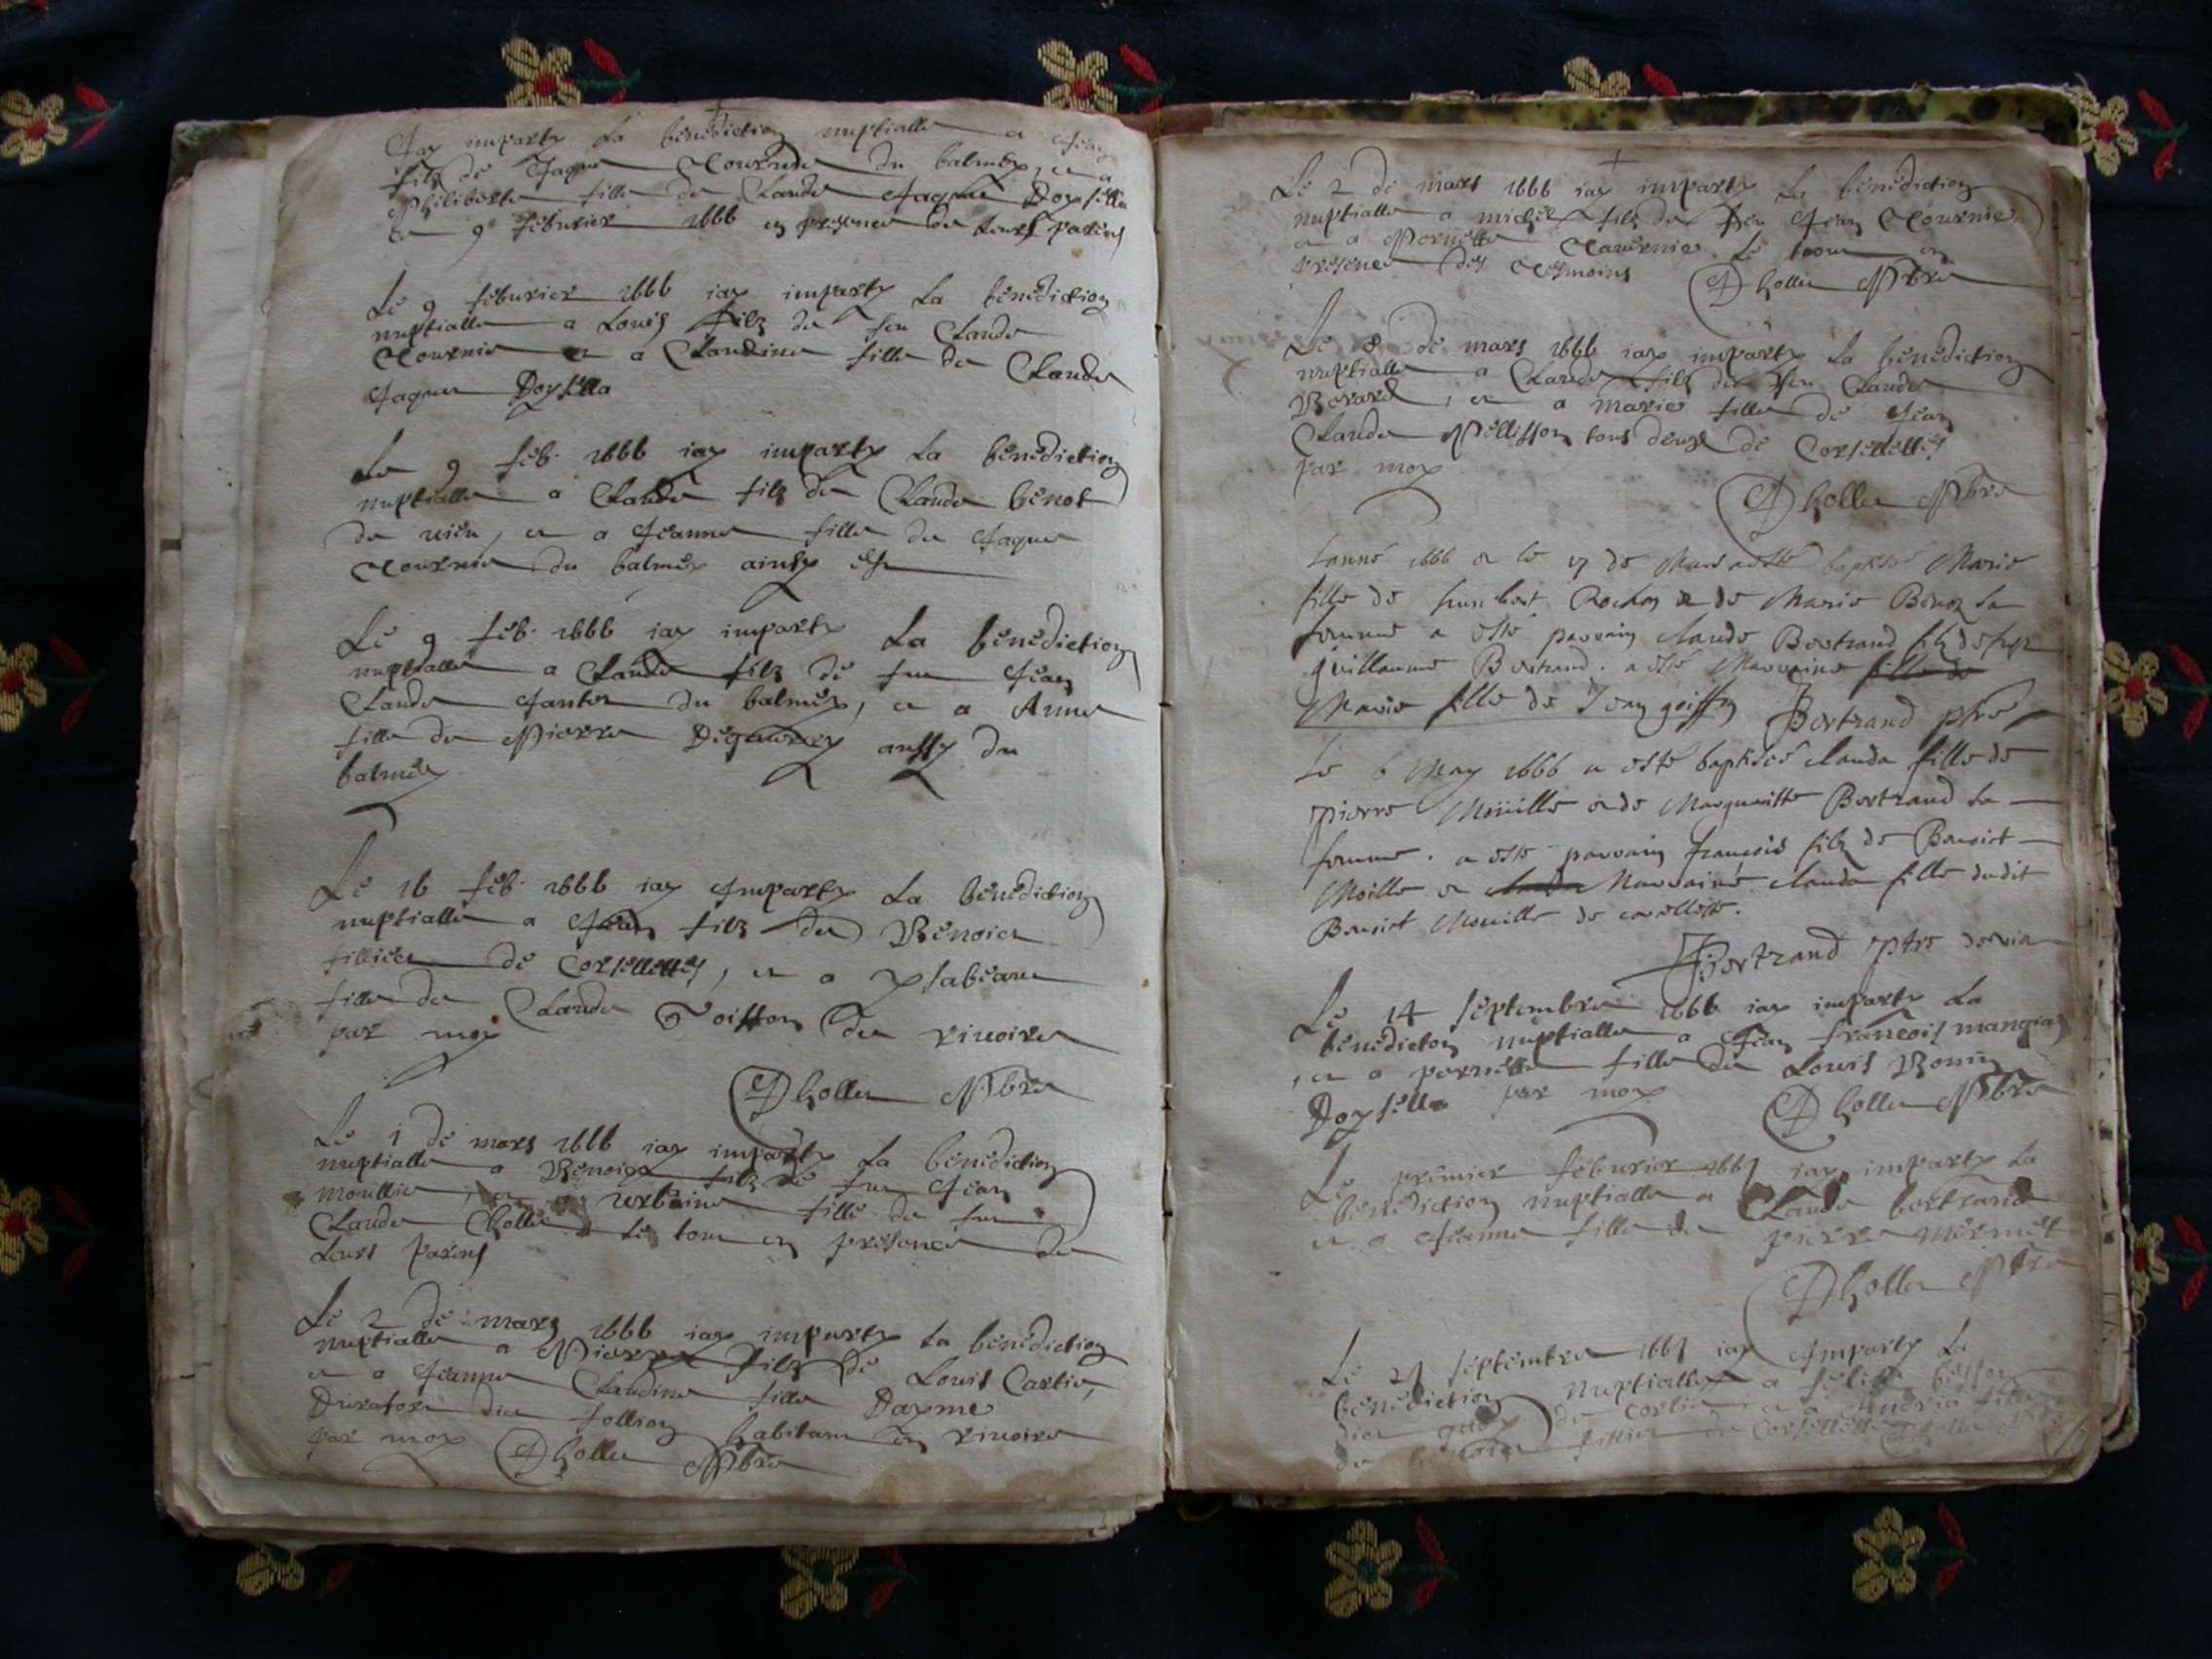 Jay imparty La benediction nuptialle a Jean
filz de Jaque Tournie du balmey, et a
Philiberte fille de Claude Jaque Doysella
Le 9 feburier 1666 en presence de leurs parens
Le 9 feburier 1666 iay imparty La benediction
nuptialle a Louis filz de feu Claude
Tournie et a Claudine fille de Claude
Jaque Doysella
Le 9 feb. 1666 iay imparty La benediction
nuptialle a Claude filz de Claude benot
de vieu, et a Jeanne fille de Jaque
Tournie du balmey ainsy est
Le 9 feb. 1666 iay imparty La benediction
nuptialle a Claude filz de feu Jean
Claude du balmey, et a Anne
fille de Pierre aussy du
balmey
Le 16 feb. 1666 iay Imparty La benediction
nuptialle a Jean filz de Benoict
fillied de Corselettes, et a ysabeau
fille de Claude Goiffon de rivoire
par moy
D hollie Pbre
Le 1 de mars 1666 iay imparty La benediction
nuptialle a Benoict filz de feu Jean
mouillie, et a urbaine fille de feu
Claude Chollie le tout en presence de
Leurs Parens
Le 2 de mars 1666 iay imparty La benediction
nuptialle a Pierre filz de Louis Cartie,
et a Jeanne Claudine fille Dayme
dict habitant en rivoire
par moy D hollie Pbre
Le 2 de mars 1666 iay imparty La benediction
nuptialle a michel filz de feu Jean Tournie,
et a Pernette Tavernie. Le tout en
presence des Tesmoins D hollie Pbre
Le 8 de mars 1666 iay imparty La benediction
nuptialle a Claude filz de feu Claude
Berard, et a marie fille de Jean
Claude Pellisson tous deux de Corselettes
par moy
D hollie Pbre
Lanne 1666 et le 17 de Mars a esté baptisé Marie
fille de humbert Rochon et de Marie Benoz sa
femme a esté parrain claude Bertrand filz de feu
guillaume Bertrand. a esté Marraine fille de
Marie fille de Jean goiffon Bertrand ptre
Le 6 May 1666 a esté baptisée clauda fille de
pierre Moüille et de Margueritte Bertrand sa
femme. a esté parrain francois filz de Benoict
Moille et clauda Marraine clauda fille dudit
Benoict Mouille de
Bertrand ptre
Le 14 septembre 1666 iay imparty La
benediction nuptialle a Jean francois mangin
, et a pernette fille de Louis Bonin
Doysella par moy D hollie Pbre
Le premier feburier 1667 iay imparty La
benediction nuptialle a Claude bertrand
et a Jeanne fille de pierre mermet
D hollie Pbre
Le 27 septembre 1667 iay Imparty La
benediction nuptialle a
dict de et a fille
de fillied de Corselettes D hollie Pbre